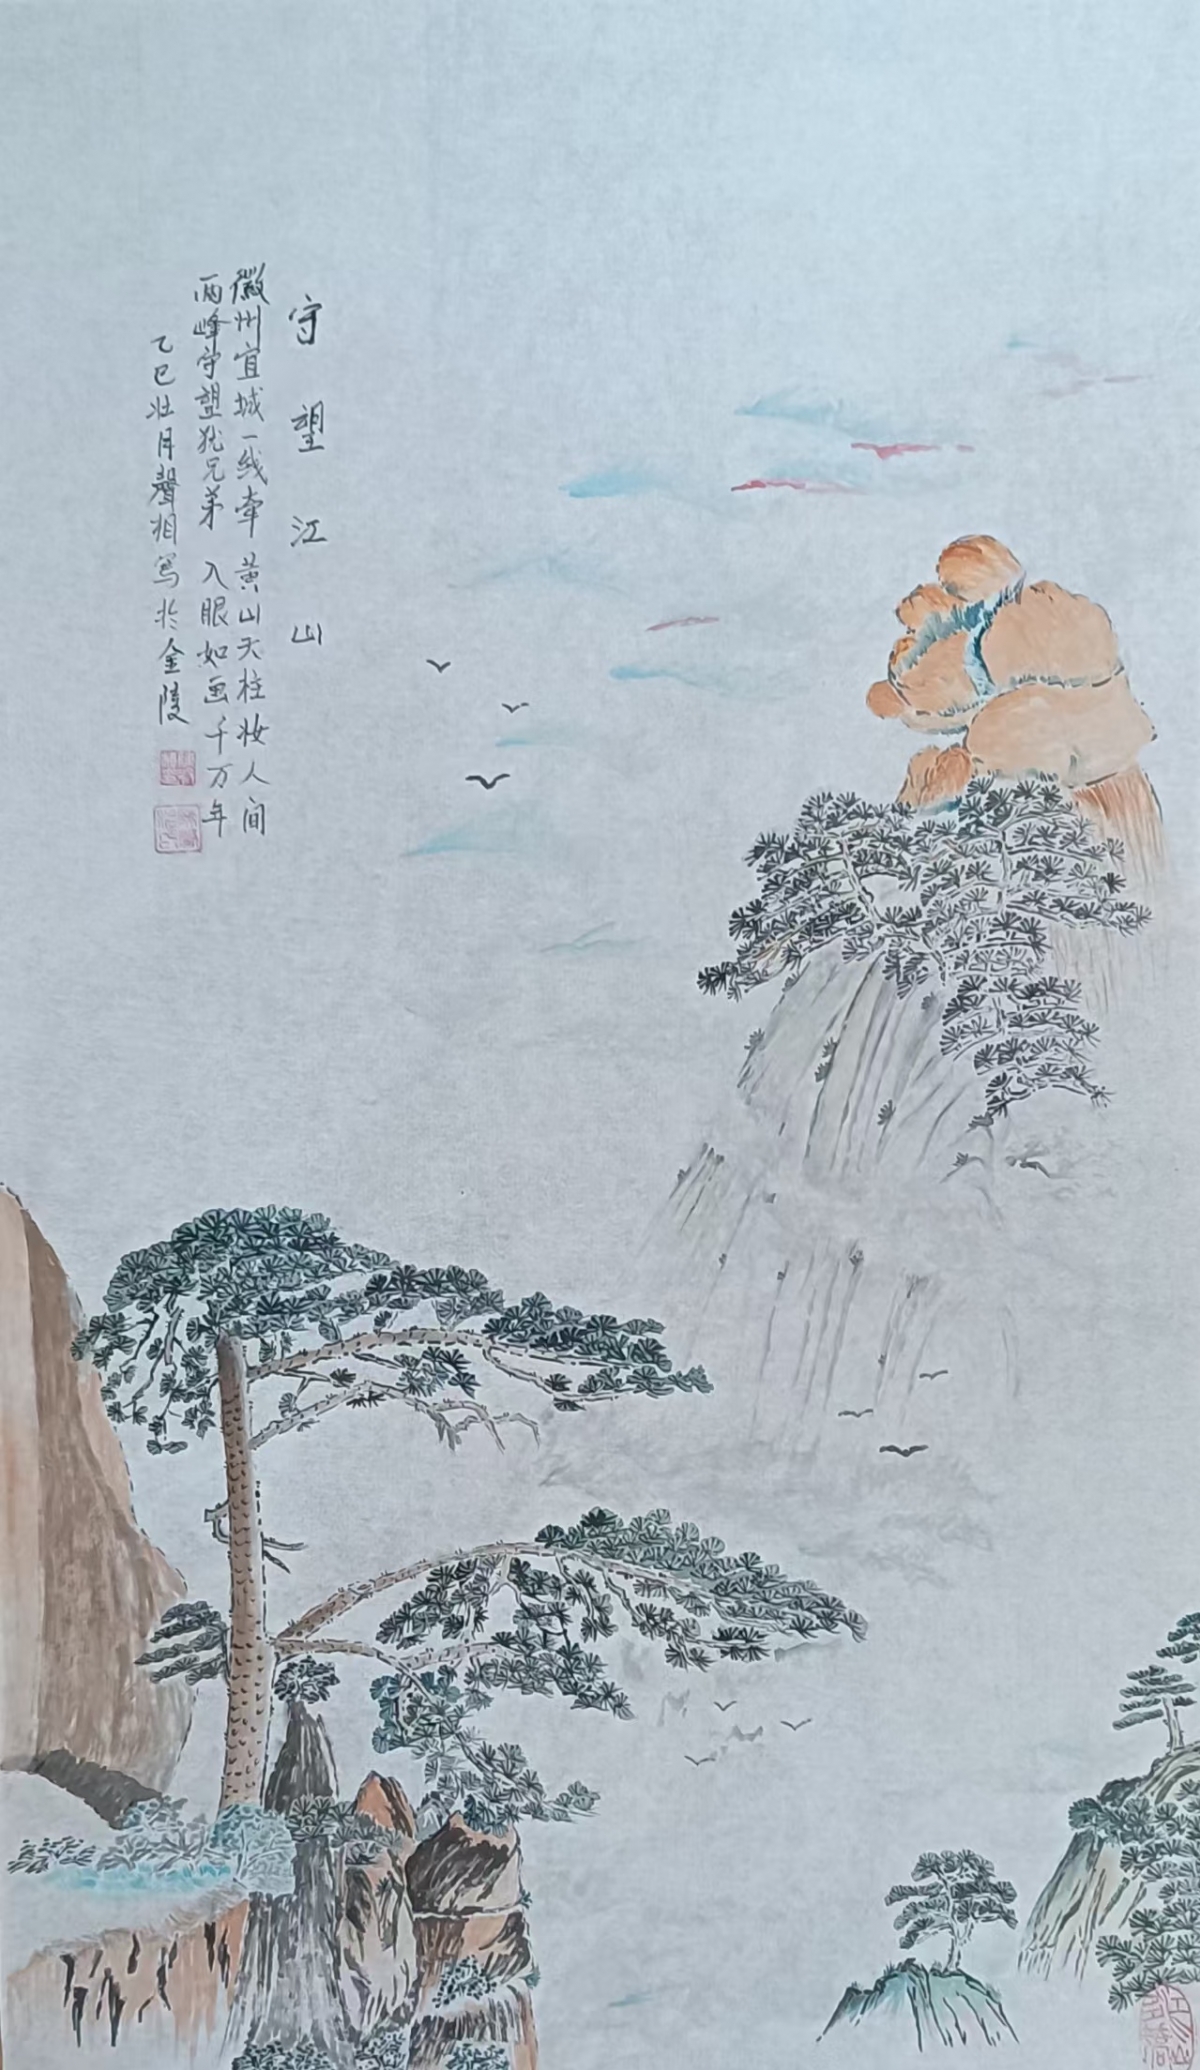 守望江山
徽州宜城一线牵 黄山天柱妆人间
两峰守望犹兄弟 入眼如画千万年
乙巳壮月聲相写於金陵